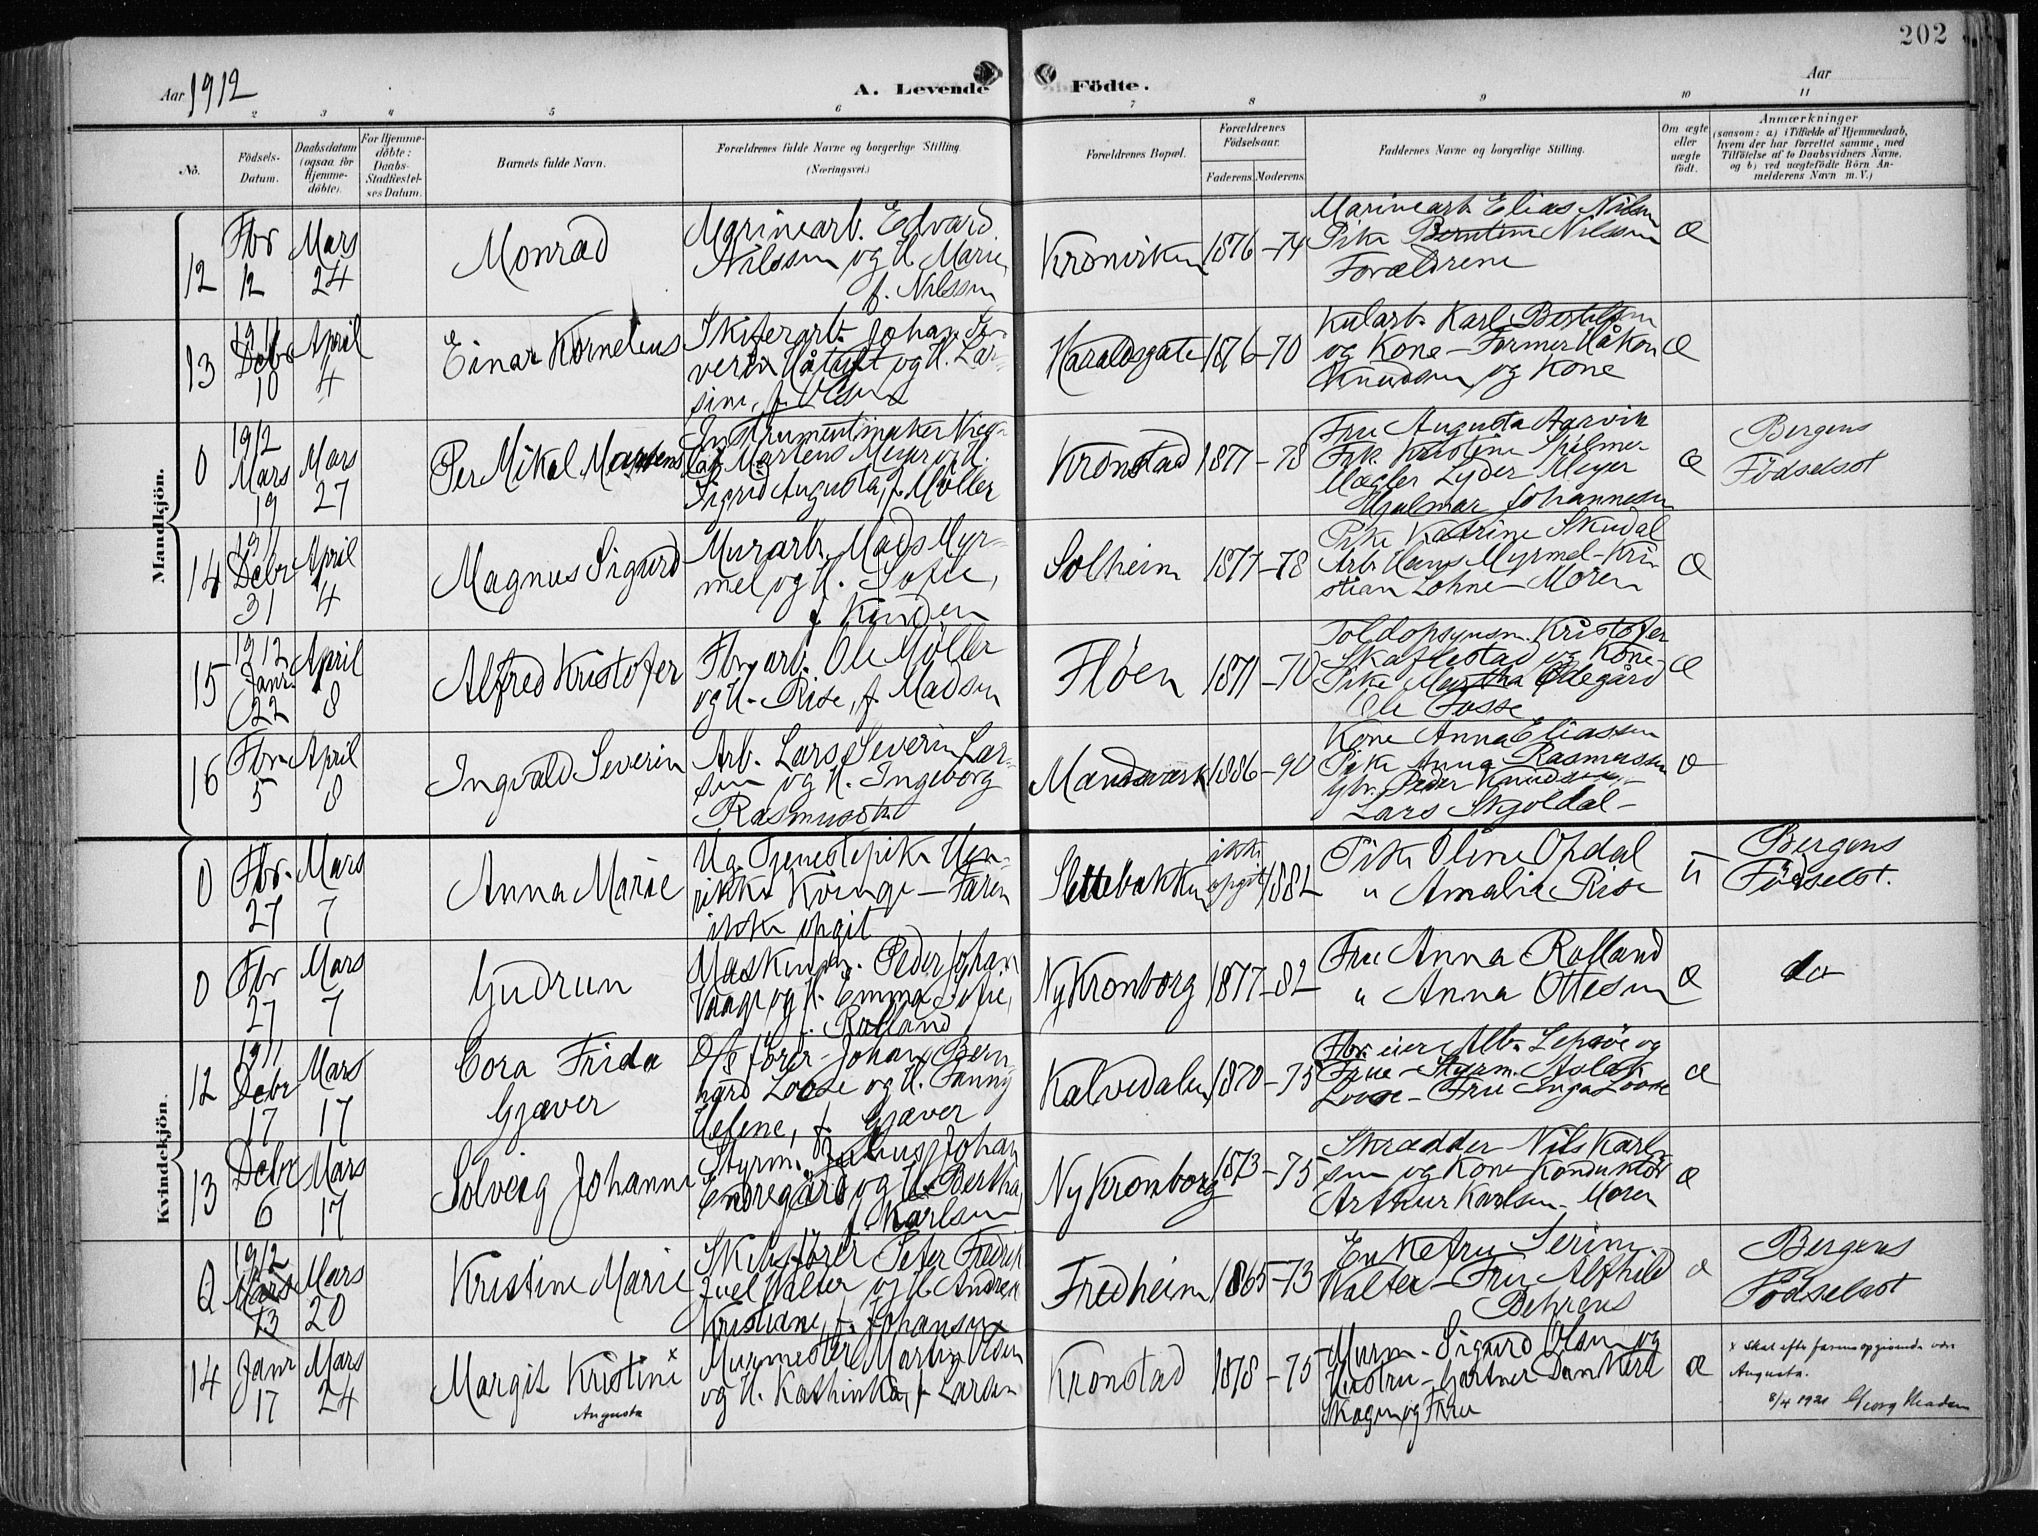 202
Aar 1912
A. Levende Födte.
Aar
2 3 4 5 6 7 8 9 10 11
No.
Födsels-Datum.
Daabsdatum (ogsaa for Hjemmedöbte).
For Hjemmedöbte: Daabs-Stadfæstelses Datum.
Barnets fulde Navn.
Forældrenes fulde Navne og borgerlige Stilling. (Næringsvei.)
Forældrenes Bopæl.
Forældrenes Födselsaar.
Faderens. Moderens.
Faddernes Navne og borgerlige Stilling.
Om ægte eller uægte födt.
Anmærkninger
(saasom: a) i Tilfælde af Hjemmedaab, hvem der har forrettet samme, med Tilföielse af to Daabsvidners Navne, og b) ved uægtefödte Börn Anmelderens Navn m. V.)
Mandkjön.
12 Fbr 12 Mars 24
Monrad
Marinearb. Edvard
Nilssen og H. Marie,
f. Nilssen
Kronviken 1876 - 74
Marinearb. Elias Nilsen
Pike Berntine Nilssen
Forældrene
Æ
13 1911 Debr 10 April 4
Einar Kornelius
Skiferarb. Johan Se-
verin Håtuft og H. Lar-
sine, f. Olsen
Haraldsgate 1876 - 70
Kularb. Karl Bertelsen
og Kone - Former Håkon
Knudsen og Kone
Æ
0 1912 Mars 19 Mars 27
Per Mikal Martens
Instrumentmaker Nico-
lai Martens Meyer og H.
Sigrid Augusta, f. Möller
Kronstad 1877 - 78
Fru Augusta Aarvik
Frk. Kristine
Mægler Lyder Meyer
Hjalmar Johannesen
Æ
Bergens
Födselsst
14 1911 Debr 31 April 4
Magnus Sigurd
Murarb. Mads Myr-
mel og H. Sofie,
f. Kinden
Solheim 1877 - 78
Pike Katrine Skudal
Arb. Hans Myrmel - Kri
stian Lohne - Moren
Æ
15 1912 Janr. 22 April 8
Alfred Kristofer
Fbryarb. Ole Möller
og H. Rise, f. Madsen
Flöen 1871 - 70
Toldopsynsm. Kristofer
Skaflestad og Kone
Pike Martha Ödegård
Ole Fosse
Æ
16 Fbr 5 April 8
Ingvald Severin
Arb. Lars Severin Lar-
sen og H. Ingeborg
Rasmussen
Mandsverk 1886 - 90
Kone Anna Eliassen
Pike Anna Rasmussen
Gbr. Peder Knudsen
Lars Skjoldal -
Æ
Kvindekjön.
0 Fbr. 27 Mars 7
Anna Marie
Ug. Tjenestepike Hen-
rikke Kvinge - Faren
ikke opgit
Slettebakken ikke opgit 1882
Pike Oline Opdal
" Amalie Rise
U
Bergens
Födselsst.
0 Fbr 27 Mars 7
Gudrun
Maskinm. Peder Johan
Vaage og H. Emma Sofie,
f. Rolland
Ny Kronborg 1877 - 82
Fru Anna Rolland
" Anna Ottesen
Æ
do
12 1911 Debr 17 Mars 17
Cora Frida
Gjæver
D/s förer Johan Bern
hard Loose og H. Fanny
Helene, f. Gjæver
Kalvedalen 1870 - 75
Fbr. eier Alb. Lepsöe og
Frue - Styrm. Aslak
Loose - Fru Inga Loose
Æ
13 Debr 6 Mars 17
Solveig Johanne
Styrm. Julius Johan
Endregård og H. Bertha,
f. Karlsen
Ny Kronborg 1873 - 75
Skrædder Nils Karl-
sen og Kone Konduktör
Arthur Karlsen, Moren
Æ
0 1912 Mars 13 Mars 20
Kristine Marie
Skibsförer Peter Fredrik
Juel Walter og H. Andrea
Kristiane, f. Johansen
Fredheim 1865 - 73
Enkefru Serine
Walter - Fru Alfhild
Behrens
Æ
Bergens
Födselsst
14 Janr 17 Mars 24
Margit Kristine x
Augusta
Murmester Martin Olsen
og H. Kathinka, f. Larsen
Kronstad 1878 - 75
Murm. Sigurd Olsen og
Hustru - Gartner Dankert
Skagen og Frue
Æ
x Skal efter farens opgivende være
Augusta.
8/4 1921 Georg